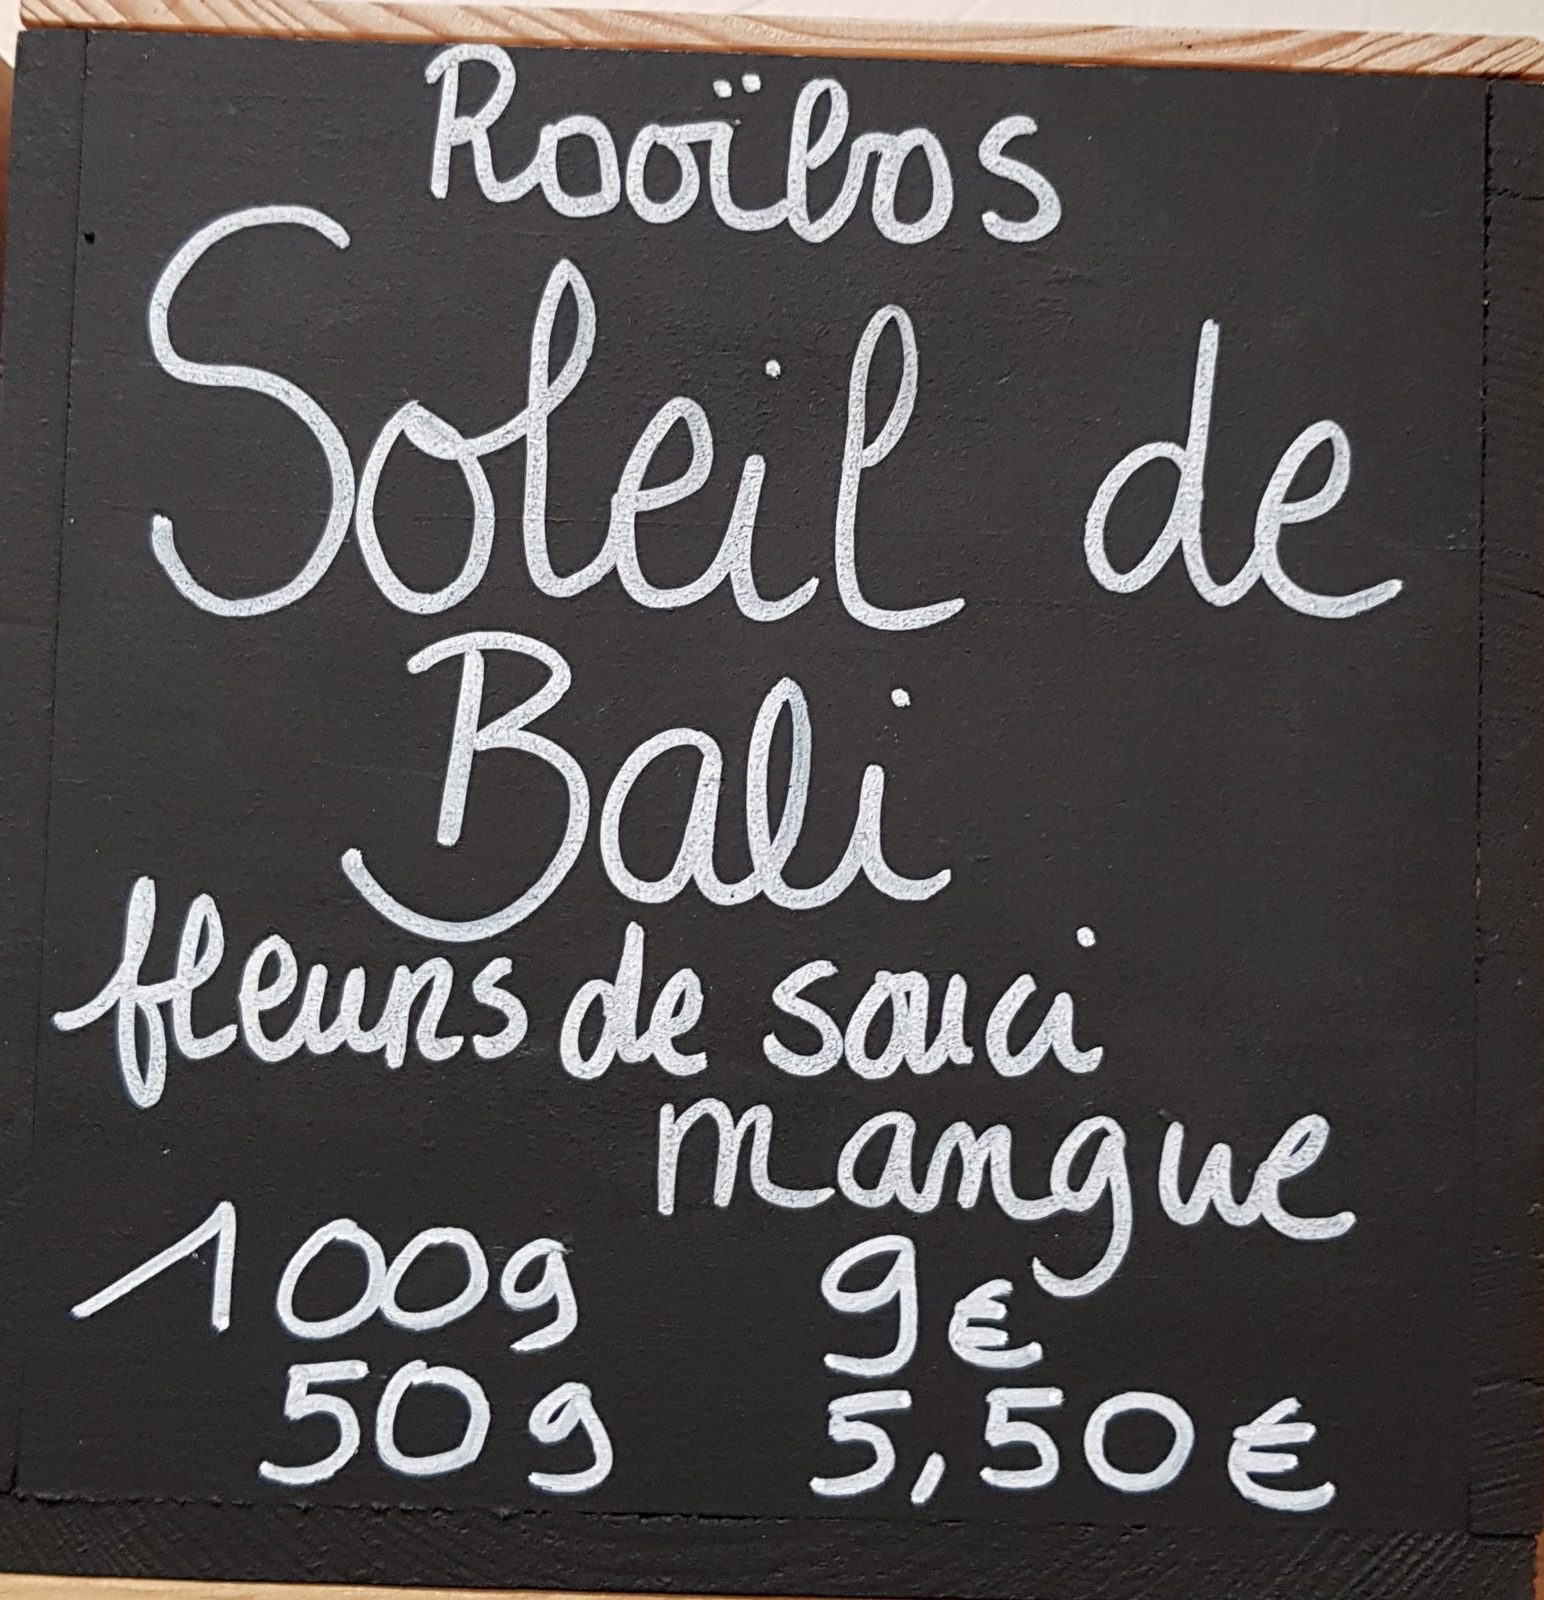 Rooïbos
Soleil de
Bali
fleurs de souci
mangue
100g 9€
50g 5,50€